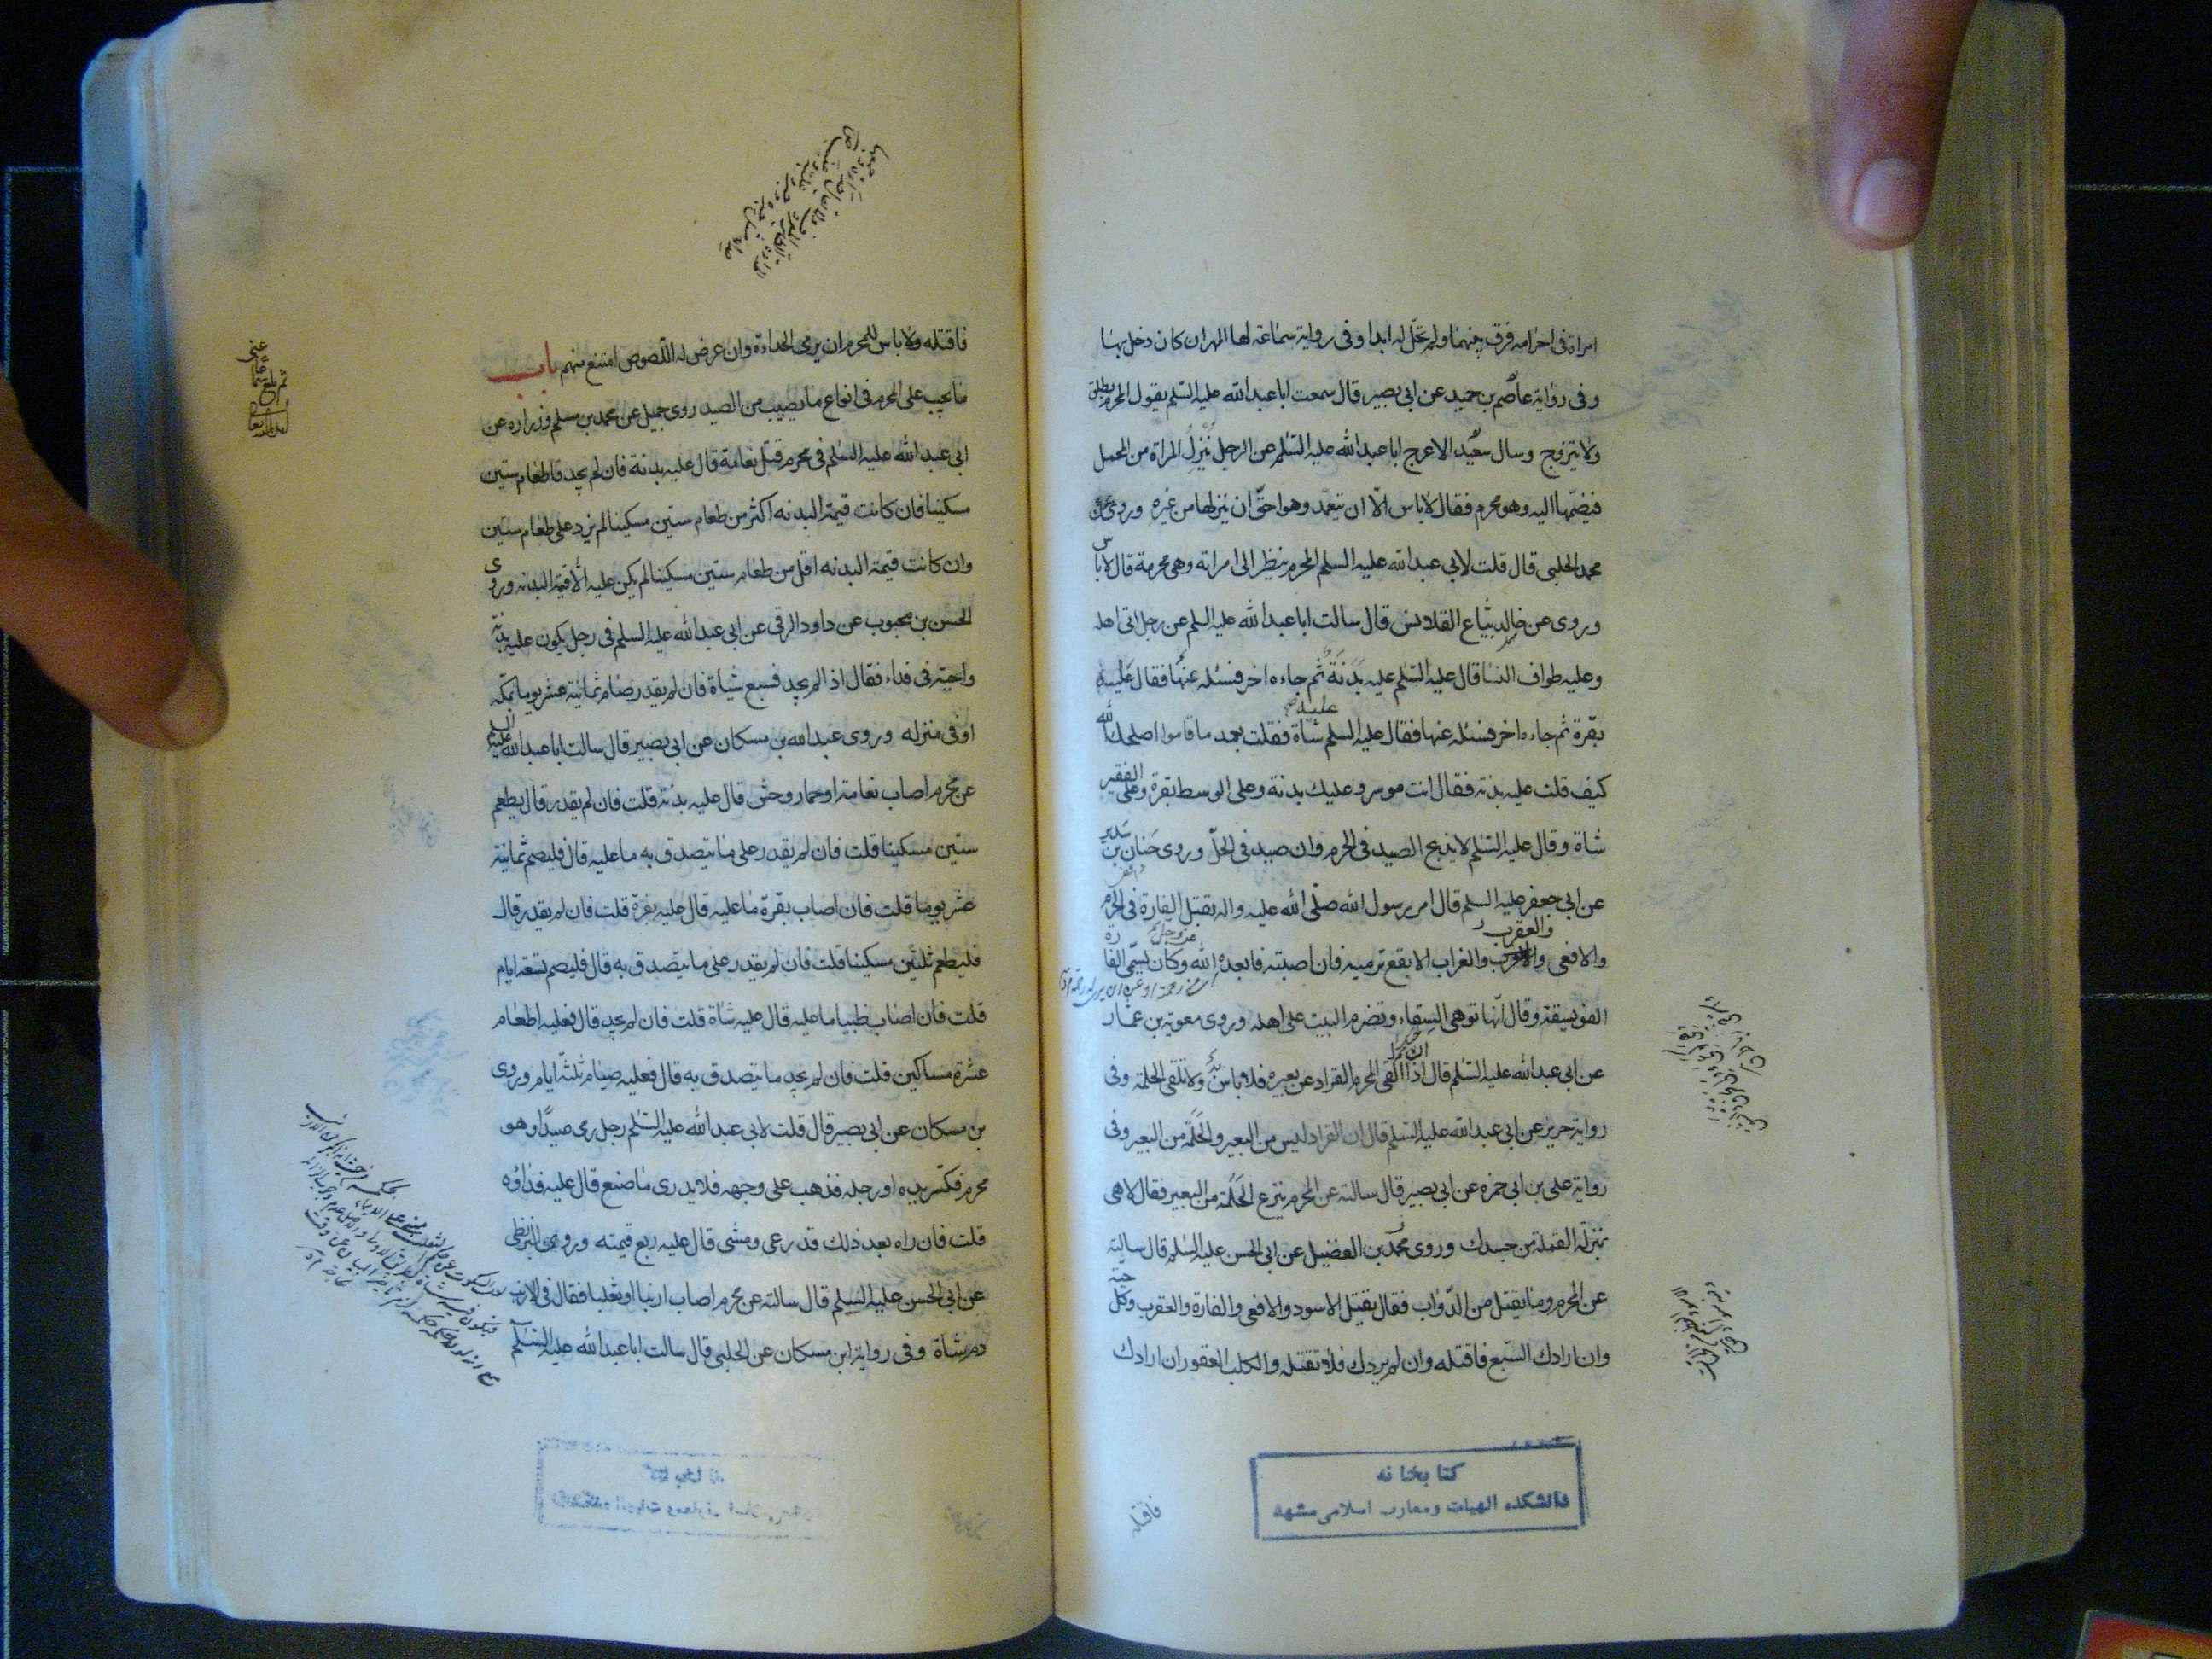 امراة فى احرامه فرق بينهما ولم تحل له ابدا وفى رواية سماعة لها المهر ان كان دخل بها
وفى رواية عاصم بن حميد عن ابى بصير قال سمعت ابا عبد الله عليه السلم يقول المحرم يطلق
ولا يتزوج وسال سعيد الاعرج ابا عبد الله عليه السلم عن الرجل ينزل المراة من المحمل
فيضمها اليه وهو محرم فقال لا باس الا ان يتعمد وهو احق ان ينزلها من غيره وروى عن
محمد الحلبى قال قلت لابى عبد الله عليه السلم المحرم ينظر الى امراته وهى محرمة قال لا باس
وروى عن خالد بياع القلانس قال سالت ابا عبد الله عليه السلم عن رجل اتى اهله
وعليه طواف النسا قال عليه السلم عليه بدنة ثم جاءه اخر فسئله عنها فقال عليه
بقرة ثم جاءه اخر فسئله عنها فقال عليه السلم عليه شاة فقلت بعد ما قاموا اصلحك الله
كيف قلت عليه بدنة فقال انت موسر وعليك بدنة وعلى الوسط بقرة وعلى الفقير
شاة وقال عليه السلم لا يذبح الصيد فى الحرم وان صيد فى الحل وروى حنان بن سدير
عن ابى جعفر عليه السلم قال امر رسول الله صلى الله عليه واله بقتل الفارة فى الحرم
والافعى والعقرب والغراب الابقع ترميه فان اصبته فابعده الله عز وجل وكان يسمى الفارة
الفويسقة وقال انها توهى السقاء وتضرم البيت على اهله وروى معوية بن عمار
عن ابى عبد الله عليه السلم قال اذا القى المحرم القراد عن بعيره فلا باس به ولا تلقى الحلمة وفى
رواية حريز عن ابى عبد الله عليه السلم قال ان القراد ليس من البعير والحلمة من البعير وفى
رواية على بن ابى حمزه عن ابى بصير قال سالته عن المحرم ينزع الحلمة من البعير فقال لا هى
بمنزلة القملة من جسدك وروى محمد بن الفضيل عن ابى الحسن عليه السلم قال سالته
عن المحرم وما يقتل من الدواب فقال يقتل الاسود والافعى والفارة والعقرب وكل حية
وان ارادك السبع فاقتله وان لم يردك فلا تقتله والكلب العقور ان ارادك
فاقتله
كتابخانه
دانشكده الهيات ومعارف اسلامى مشهد
فاقتله ولا باس للمحرم ان يرمى الحداءة وان عرض له اللصوص امتنع منهم باب
ما يجب على المحرم فى انواع ما يصيب من الصيد روى جميل عن محمد بن مسلم وزراره عن
ابى عبد الله عليه السلم فى محرم قتل نعامة قال عليه بدنة فان لم يجد فاطعام ستين
مسكينا فان كانت قيمة البدنه اكثر من طعام ستين مسكينا لم يزد على طعام ستين
وان كانت قيمة البدنه اقل من طعام ستين مسكينا لم يكن عليه الا قيمة البدنه وروى
الحسن بن محبوب عن داود الرقى عن ابى عبد الله عليه السلم فى رجل يكون عليه بدنة
واجبة فى فداء فقال اذا لم يجد فسبع شياة فان لم يقدر صام ثمانية عشر يوما بمكه
او فى منزله وروى عبد الله بن مسكان عن ابى بصير قال سالت ابا عبد الله عليه السلم
عن محرم اصاب نعامة او حمار وحش قال عليه بدنة قلت فان لم يقدر قال يطعم
ستين مسكينا قلت فان لم يقدر على ما يتصدق به ما عليه قال فليصم ثمانية
عشر يوما قلت فان اصاب بقرة ما عليه قال عليه بقرة قلت فان لم يقدر قال
فليطعم ثلثين مسكينا قلت فان لم يقدر على ما يتصدق به قال فليصم تسعة ايام
قلت فان اصاب ظبيا ما عليه قال عليه شاة قلت فان لم يجد قال فعليه اطعام
عشرة مساكين قلت فان لم يجد ما يتصدق به قال فعليه صيام ثلثة ايام وروى
بن مسكان عن ابى بصير قال قلت لابى عبد الله عليه السلم رجل رمى صيدا وهو
محرم فكسر يده او رجله فذهب على وجهه فلا يدرى ما صنع قال عليه فداؤه
قلت فان راه بعد ذلك قد رعى ومشى قال عليه ربع قيمته وروى البزنطى
عن ابى الحسن عليه السلم قال سالته عن محرم اصاب ارنبا او ثعلبا فقال فى الارنب
دم شاة وفى رواية ابن مسكان عن الحلبى قال سالت ابا عبد الله عليه السلم